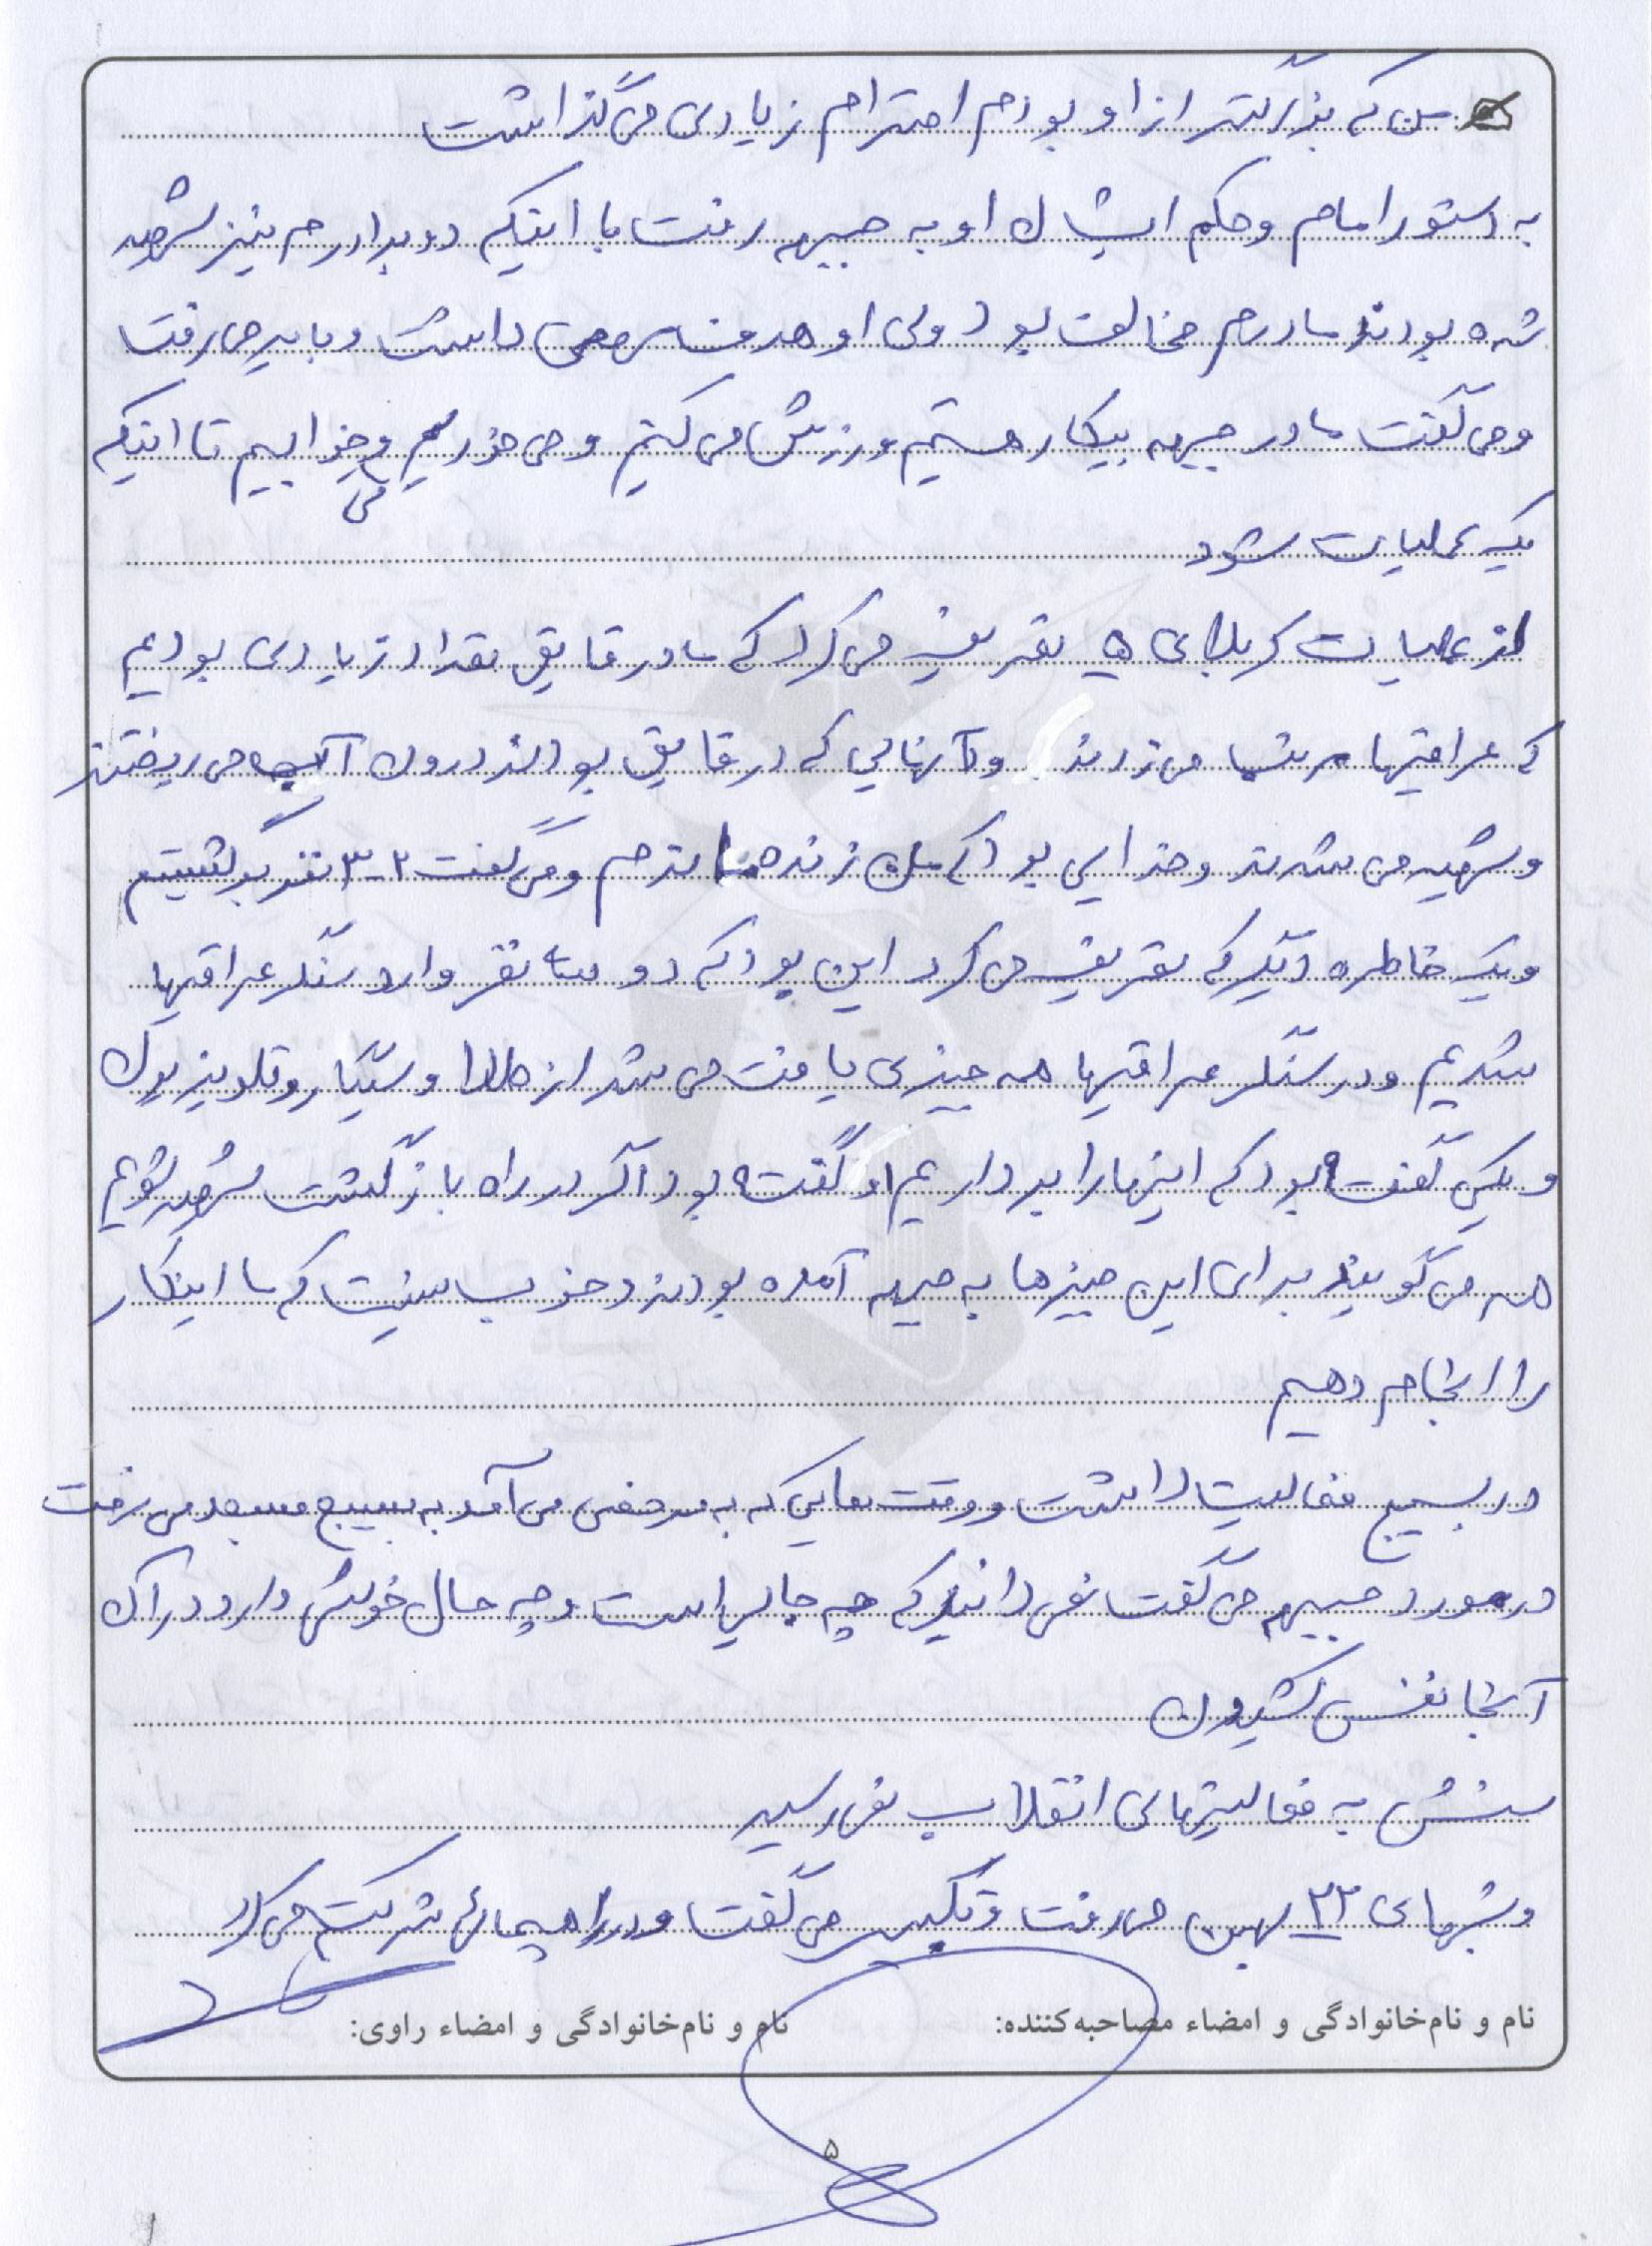 من که بزرگتر از او بودم احترام زیادی می گذاشت
به دستور امام و حکم ایشان او به جبهه رفت با اینکه دو برادرم نیز شهید
شده بودند مادرم مخالف بود ولی او هدف داشت و باید می رفت
و می گفت ما در جبهه بیکار هستیم ورزش می کنیم و می خوریم و می خوابیم تا اینکه
یک عملیات شود
از عملیات کربلای ۵ تعریف می کرد که ما در قایق تعداد زیادی بودیم
که عراقیها می زدند و آنهایی که در قایق بودند درون آب می ریختند
و شهید می شدند و خدایی بود که من زنده ماندم و می گفت ۲-۳ نفر برگشتیم
و یک خاطره دیگر که تعریف می کرد این بود که دو سه نفر وارد سنگر عراقیها
شدیم و در سنگر عراقیها همه چیزی یافت می شد از طلا و سیگار و تلویزیون
و یکی گفته بود که اینها را برداریم او گفته بود اگر در راه بازگشت شهید شویم
همه می گویند برای این چیزها به جبهه آمده بودند و خوب نیست که ما اینکار
را انجام دهیم
در بسیج فعالیت داشت و وقت هایی که به مرخصی می آمد به بسیج مسجد می رفت
در مورد جبهه می گفت نمی دانید که چه جایی است و چه حال خوشی دارد در آن
آنجا نفس کشیدن
سنش به فعالیتهای انقلاب نمی رسید
و شبهای ۲۲ بهمن می رفت و تکبیر می گفت و در راهپیمائی شرکت می کرد
نام و نام‌خانوادگی و امضاء مصاحبه‌کننده: نام و نام‌خانوادگی و امضاء راوی:
۵